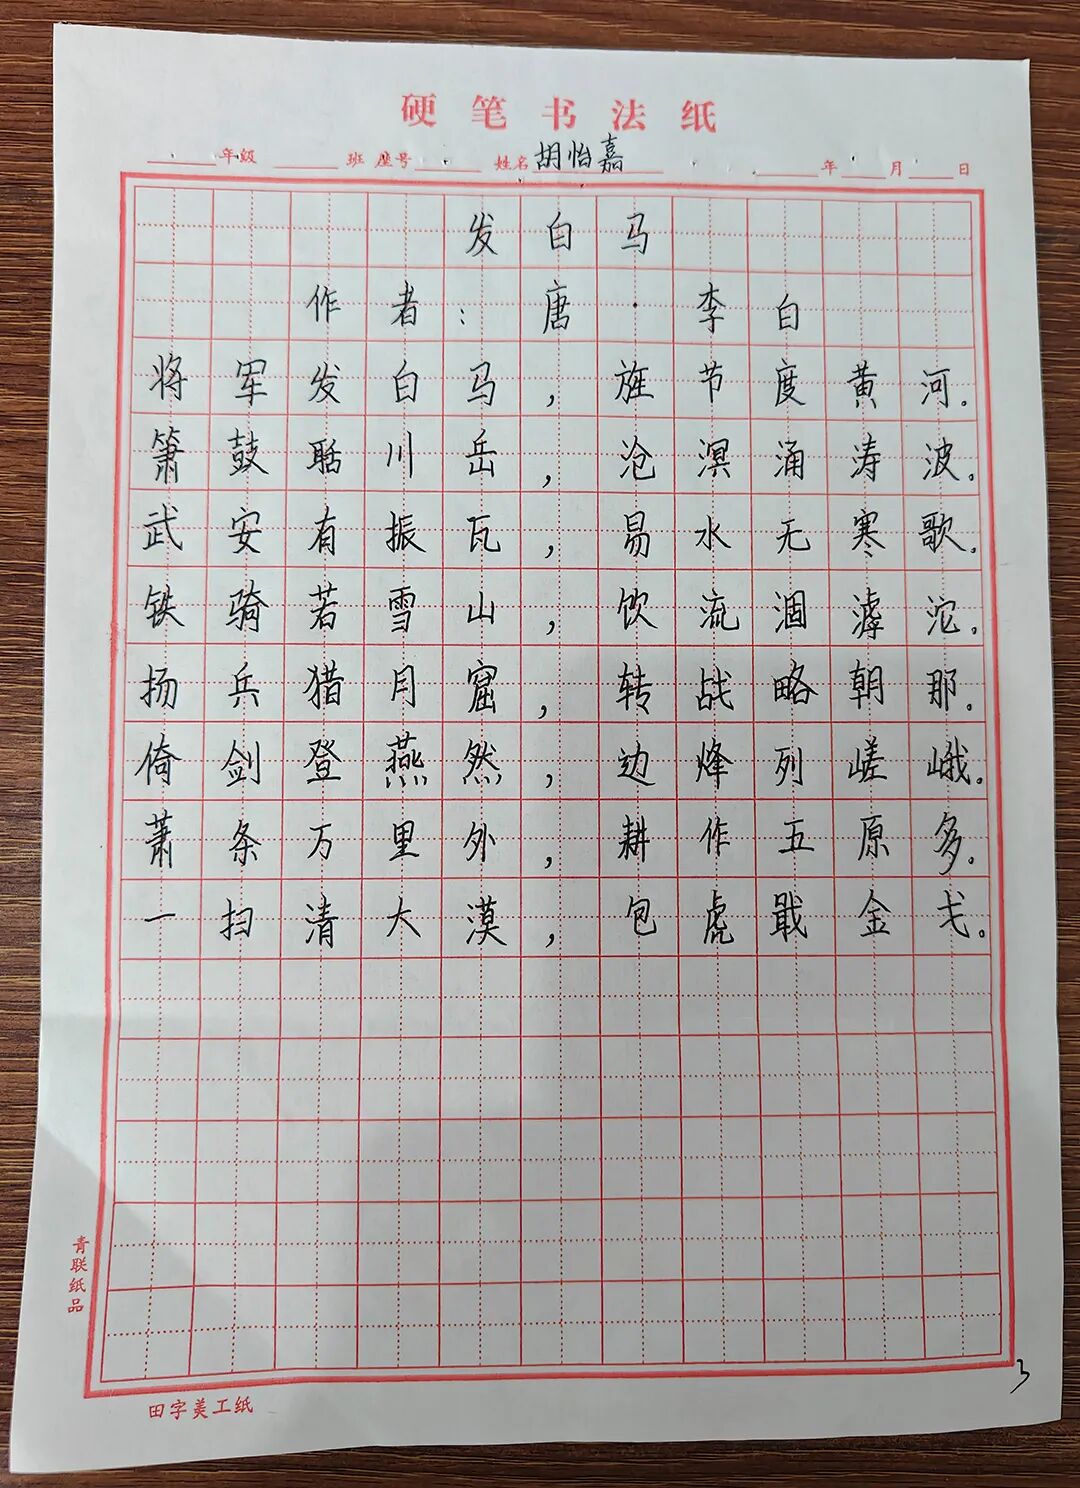 硬笔书法纸
年级 班 座号 姓名 胡怡嘉 年 月 日
发白马
作者：唐·李白
将军发白马，旌节度黄河。
箫鼓聒川岳，沧溟涌涛波。
武安有振瓦，易水无寒歌。
铁骑若雪山，饮流涸滹沱。
扬兵猎月窟，转战略朝那。
倚剑登燕然，边烽列嵯峨。
萧条万里外，耕作五原多。
一扫清大漠，包虎戢金戈。
青联纸品
田字美工纸
3